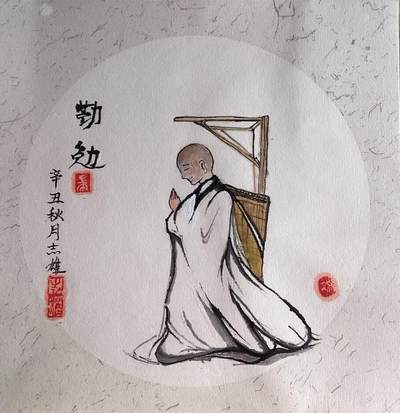 勤勉
辛丑秋月志雄